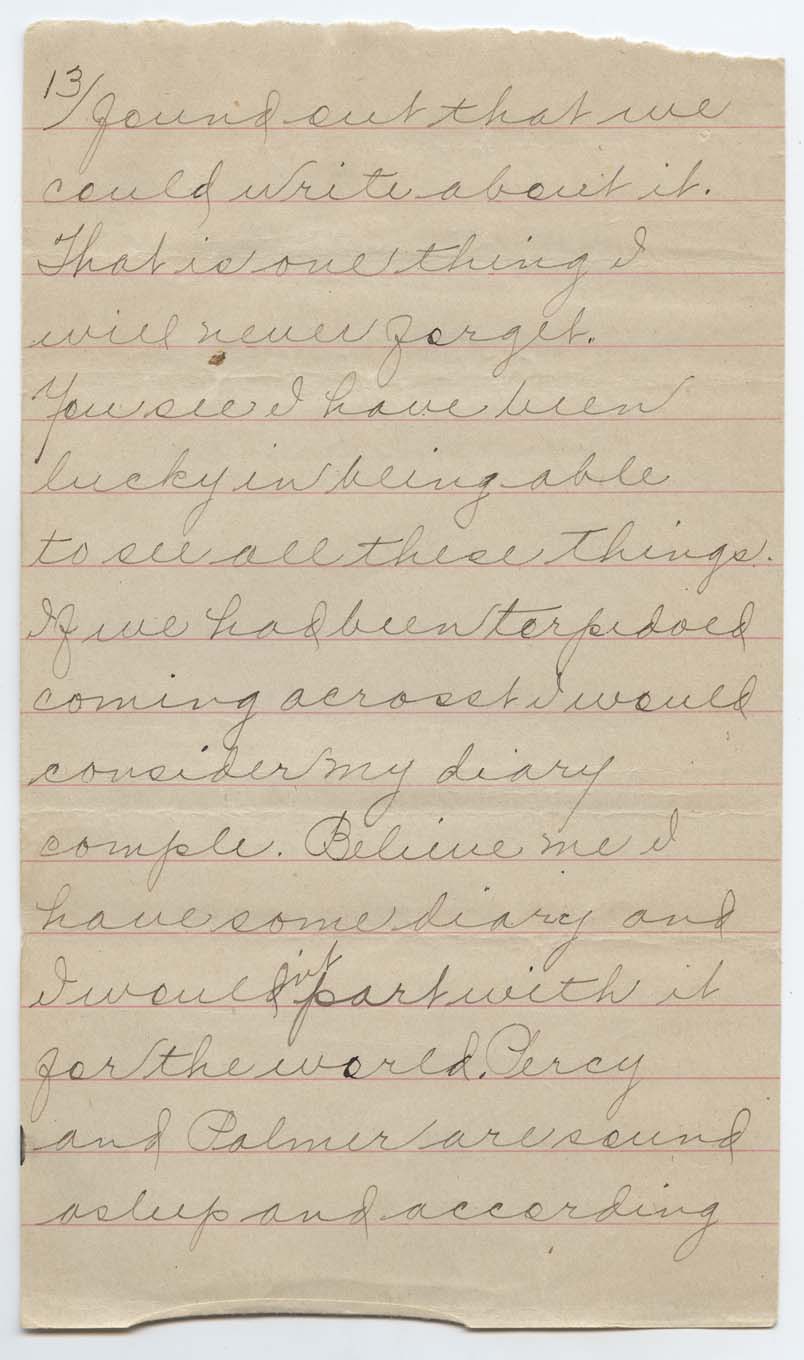 13/ found out that we
could write about it.
That is one thing I
will never forget.
You see I have been
lucky in being able
to see all these things.
If we had been torpedoed
coming acrosst I would
consider my diary
comple. Believe me I
have some diary and
I wouldn't part with it
for the world. Percy
and Palmer are sound
asleep and according